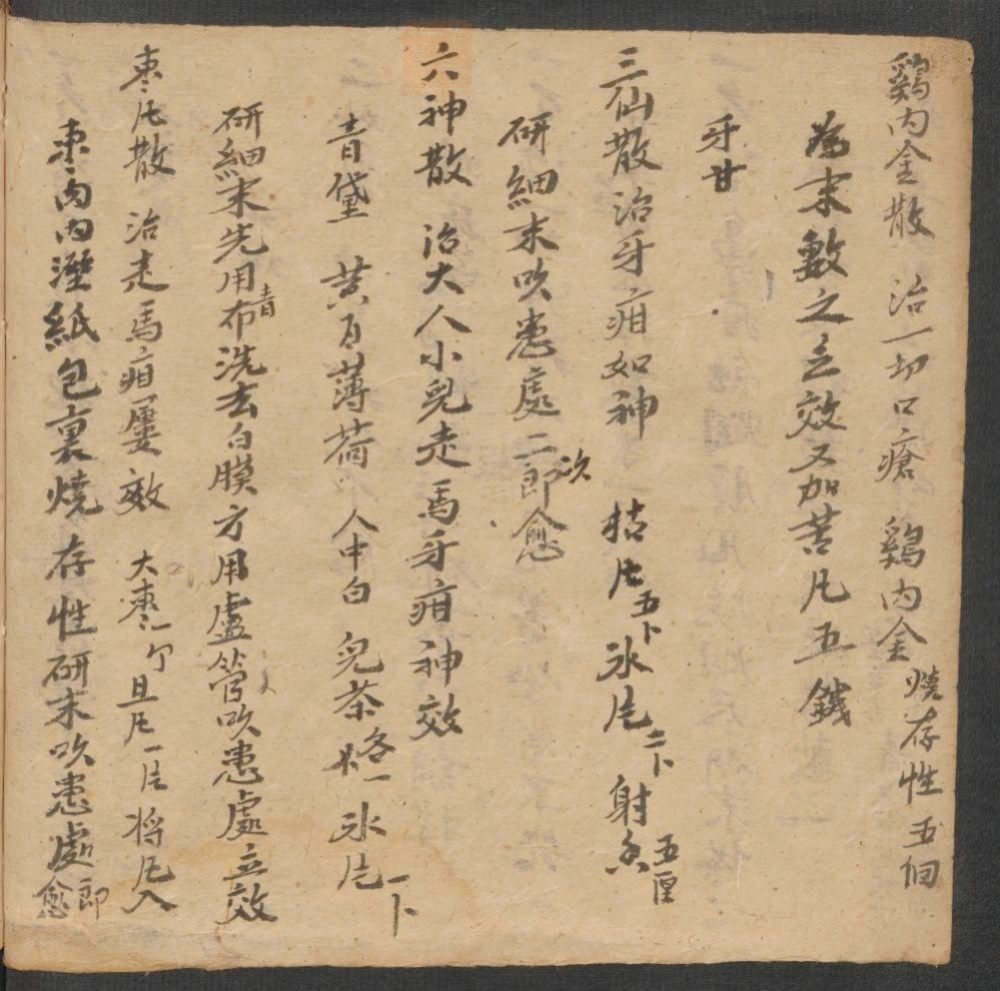 鷄內金散 治一切口瘡 鷄內金 燒存性 五個
為末敷之立效又加苦凡五錢
牙甘
三仙散治牙疳如神 枯凡五卜 氷片二卜 射香五厘
研細末吹患處二次即愈
六神散 治大人小兒走馬牙疳神效
青黛 黃百 薄荷 人中白 兒茶 各一 氷片一卜
研細末先用青布洗去白膜方用蘆管吹患處立效
棗凡散 治走馬疳屢效 大棗一个 旦凡一片 將凡入
棗肉內溼紙包裏燒存性研末吹患處即愈